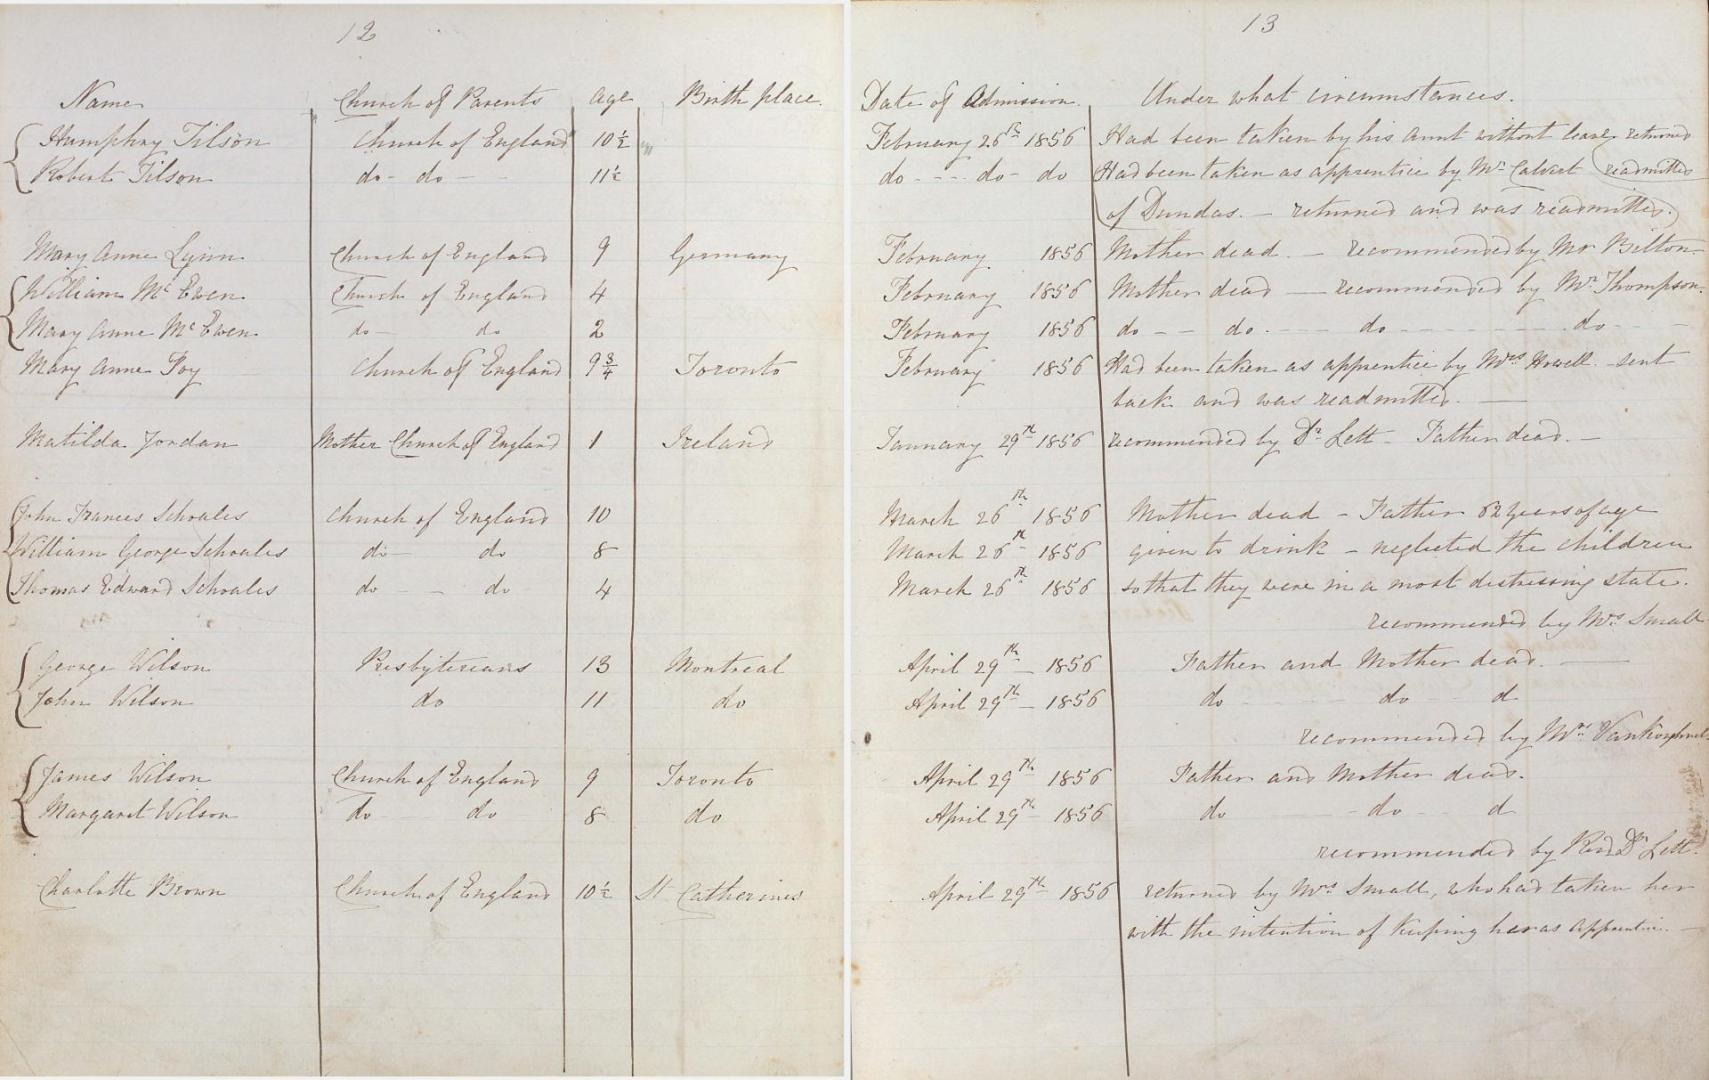 12
Name Church of Parents Age Birth place.
Humphry Tilson Church of England 10 1/2 "
Robert Tilson do - do - - 11 1/2
Mary Anne Lynn Church of England 9 Germany
William Mc Ewen Church of England 4
Mary Anne Mc Ewen do - do 2
Mary Anne Foy Church of England 9 3/4 Toronto
Matilda Jordan Mother Church of England 1 Ireland
John Frances Schoales Church of England 10
William George Schoales do - do 8
Thomas Edward Schoales do - - do 4
George Wilson Presbyterians 13 Montreal
John Wilson do 11 do
James Wilson Church of England 9 Toronto
Margaret Wilson do do 8 do
Charlotte Brown Church of England 10 1/2 St Catherines
13
Date of Admission. Under what circumstances.
February 26th 1856 Had been taken by his Aunt without leave returned
readmitted
do - - - do - do Had been taken as apprentice by Mr Calvert
of Dundas. - returned and was readmitted.
February 1856 Mother dead. - recommended by Mr Bilton
February 1856 Mother dead - recommended by Mr Thompson.
February 1856 do - - do - - - do - - - do - -
February 1856 Had been taken as apprentice by Mrs Howell - sent
back and was readmitted. -
January 29th 1856 recommended by Dr Lett - Father dead. -
March 26th 1856 Mother dead - Father 62 years of age
March 26th 1856 given to drink - neglected the children
March 26th 1856 so that they were in a most distressing state.
recommended by Mrs Small
April 29th - 1856 Father and Mother dead. -
April 29th - 1856 do do d
recommended by
April 29th 1856 Father and Mother dead.
April 29th - 1856 do - do - d
recommended by Revd Dr Lett.
April 29th 1856 returned by Mrs Small, who had taken her
with the intention of keeping her as apprentice. -